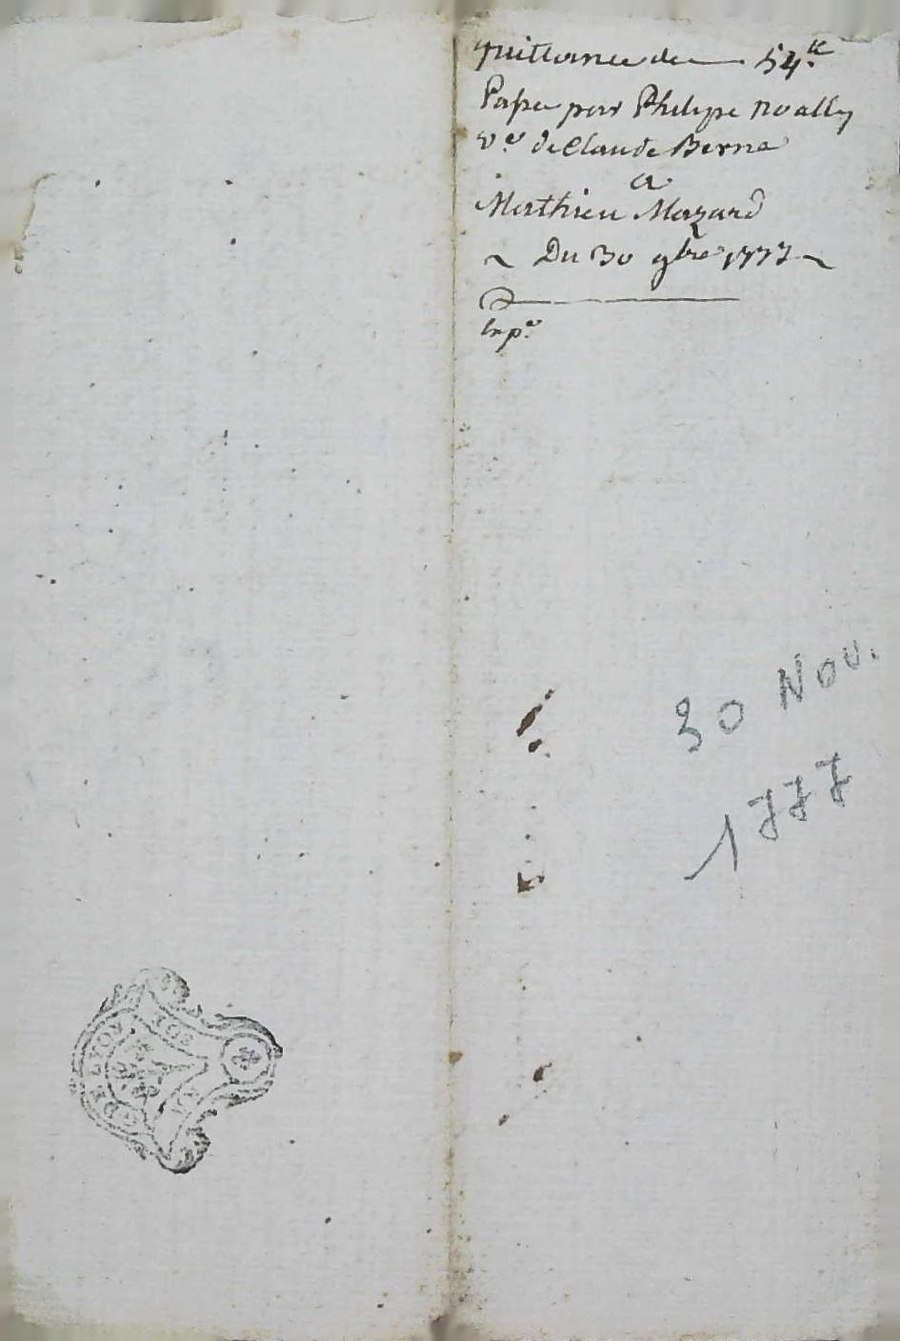 quittance de 54.tt
Passée par Philipe Noally
v.e de Claude Berne
a
Mathieu Mazard
~ Du 30 9bre 1777 ~
Exp.e
30 Nov.
1777
DE LYON